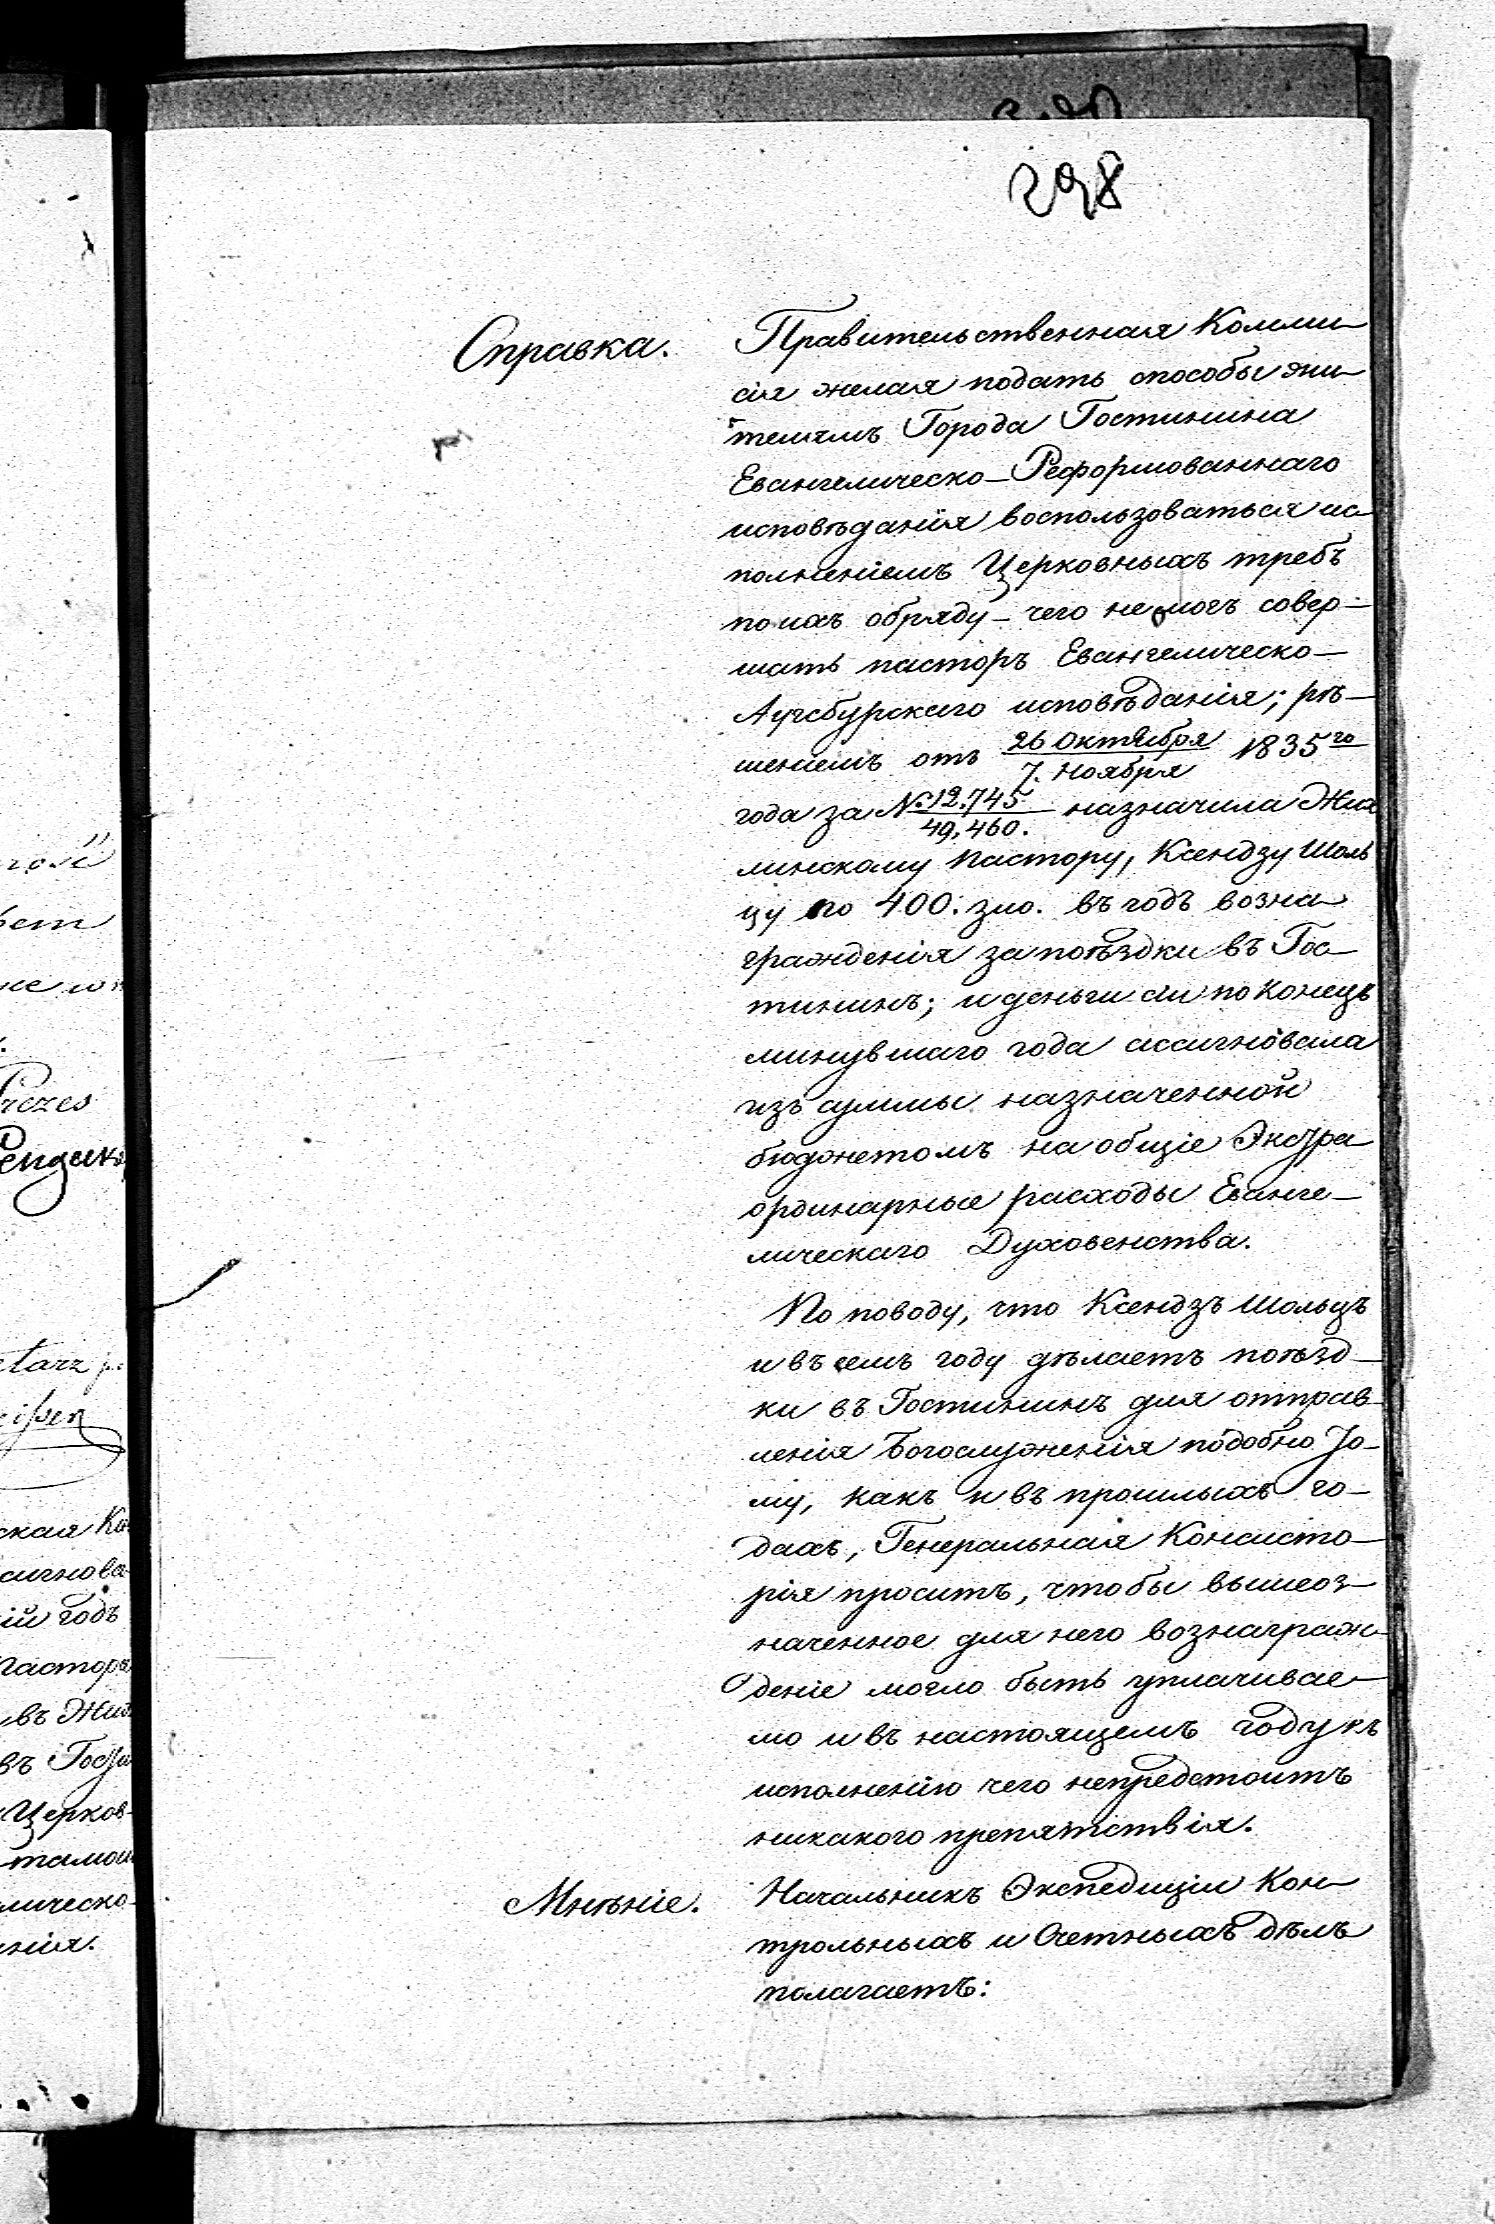 298
Справка.
Правительственная Комми-
сія желая подать способы жи-
телямъ Города Гостинина
Евангелическо-Реформованнаго
исповѣданія воспользоваться ис-
полненіемъ Церковныхъ требъ
по ихъ обряду - чего не могъ совер-
шать пасторъ Евангелическо-
Аугсбурскаго исповѣданія; рѣ-
шеніемъ отъ 26 Октября / 7. Ноября 1835го
года за №. 12.745 / 49,460. назначила Жих
линскому Пастору, Ксендзу Шоль
цу по 400. зло. въ годъ возна-
гражденія за поѣздки въ Гос-
тининъ; и деньги сіи по конецъ
минувшаго года ассигновала
изъ суммы назначенной
бюджетомъ на общіе Экстра
ординарные расходы Еванге-
лическаго Духовенства.
По поводу, что Ксендзъ Шольцъ
и въ семъ году дѣлаетъ поѣзд-
ки въ Гостининъ для отправ-
ленія Богослуженія подобно то-
му, какъ и въ прошлыхъ го-
дахъ, Генеральная Консисто-
рія проситъ, чтобы вышеоз-
наченное для него вознаграж-
деніе могло быть уплачивае-
мо и въ настоящемъ году къ
исполненію чего непредстоитъ
никакого препятствія.
Мнѣніе.
Начальникъ Экспедиціи Кон-
трольныхъ и Счетныхъ дѣлъ
полагаетъ: